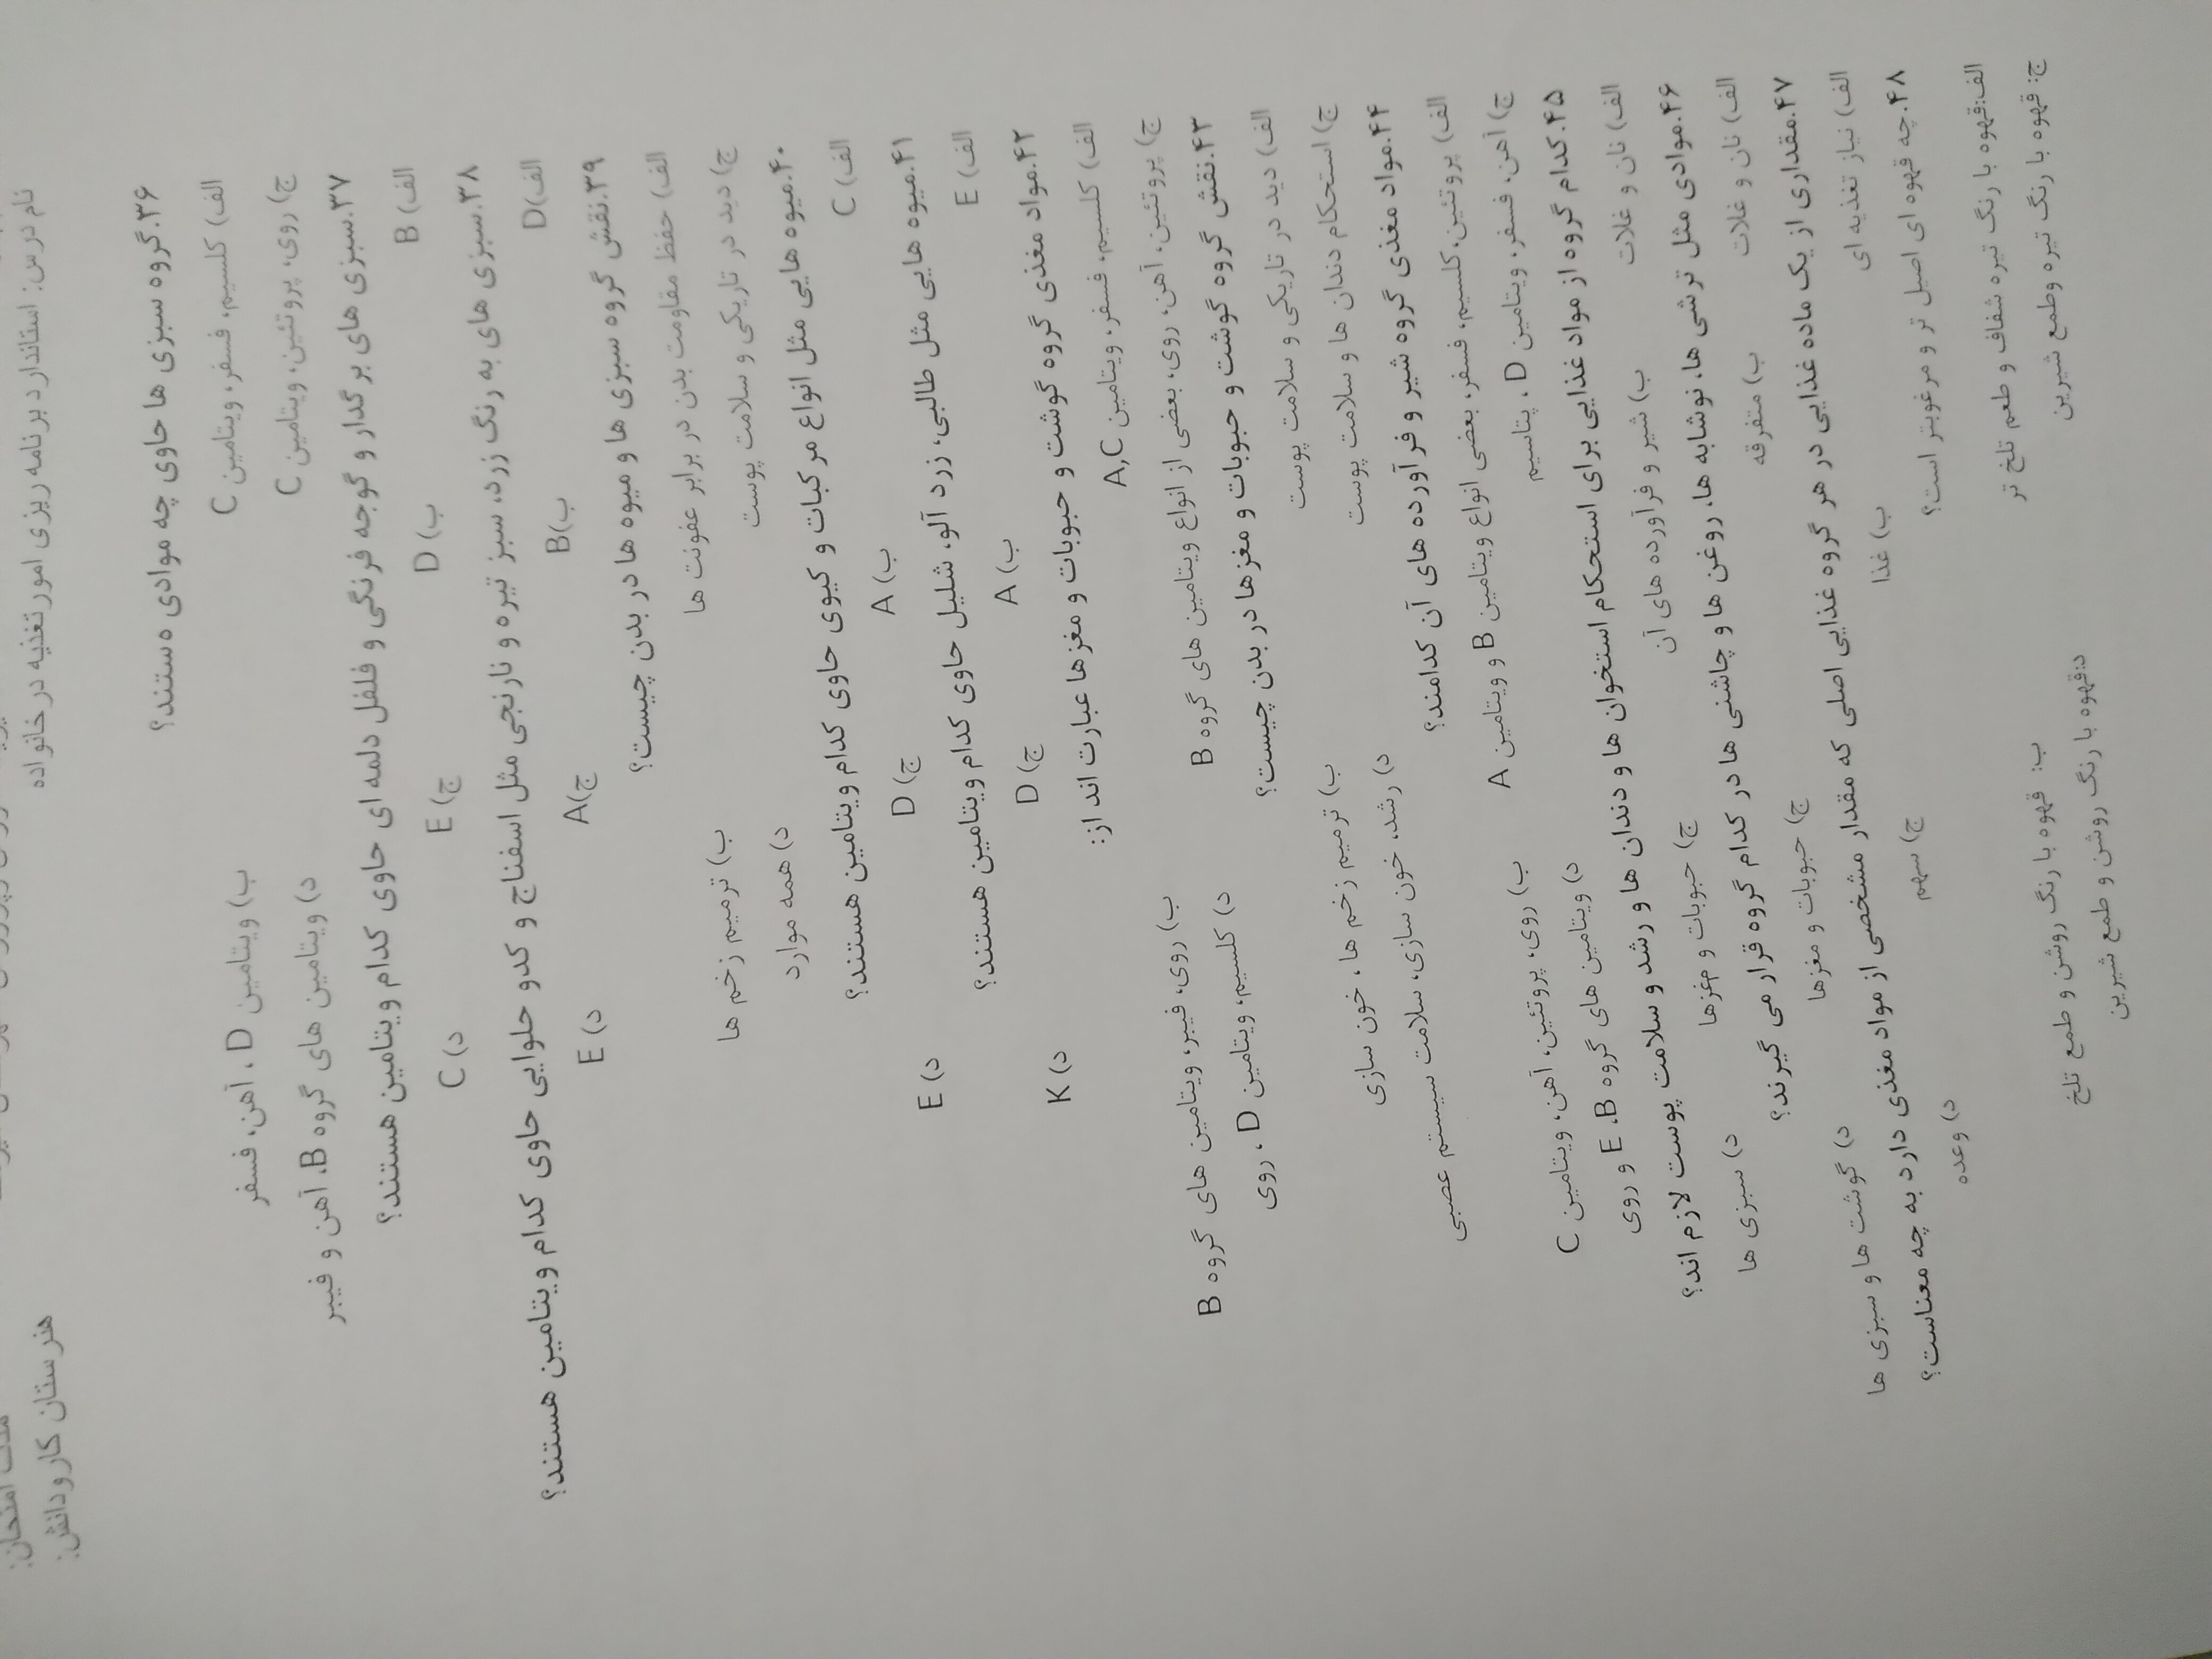 مدت امتحان:
نام درس: استاندارد برنامه ریزی امور تغذیه در خانواده
هنرستان کارودانش:
۳۶.گروه سبزی ها حاوی چه موادی ه ستند؟
الف) کلسیم، فسفر، ویتامین C
ب) ویتامین D ، آهن، فسفر
ج) روی، پروتئین، ویتامین C
د) ویتامین های گروه B، آهن و فیبر
۳۷.سبزی های برگدار و گوجه فرنگی و فلفل دلمه ای حاوی کدام ویتامین هستند؟
الف) B ب) D ج) E د) C
۳۸.سبزی های به رنگ زرد، سبز تیره و نارنجی مثل اسفناج و کدو حلوایی حاوی کدام ویتامین هستند؟
الف)D ب)B ج)A د) E
۳۹.نقش گروه سبزی ها و میوه ها در بدن چیست؟
الف) حفظ مقاومت بدن در برابر عفونت ها
ب) ترمیم زخم ها
ج) دید در تاریکی و سلامت پوست
د) همه موارد
۴۰.میوه هایی مثل انواع مرکبات و کیوی حاوی کدام ویتامین هستند؟
الف) C ب) A ج) D د) E
۴۱.میوه هایی مثل طالبی، زرد آلو، شلیل حاوی کدام ویتامین هستند؟
الف) E ب) A ج) D د) K
۴۲.مواد مغذی گروه گوشت و حبوبات و مغزها عبارت اند از:
الف) کلسیم، فسفر، ویتامین A,C
ب) روی، فیبر، ویتامین های گروه B
ج) پروتئین، آهن، روی، بعضی از انواع ویتامین های گروه B
د) کلسیم، ویتامین D ، روی
۴۳.نقش گروه گوشت و حبوبات و مغزها در بدن چیست؟
الف) دید در تاریکی و سلامت پوست
ب) ترمیم زخم ها ، خون سازی
ج) استحکام دندان ها و سلامت پوست
د) رشد، خون سازی، سلامت سیستم عصبی
۴۴.مواد مغذی گروه شیر و فرآورده های آن کدامند؟
الف) پروتئین،کلسیم، فسفر، بعضی انواع ویتامین B و ویتامین A
ب) روی، پروتئین، آهن، ویتامین C
ج) آهن، فسفر، ویتامین D ، پتاسیم
د) ویتامین های گروه E ،B و روی
۴۵.کدام گروه از مواد غذایی برای استحکام استخوان ها و دندان ها و رشد و سلامت پوست لازم اند؟
الف) نان و غلات ب) شیر و فرآورده های آن ج) حبوبات و مغزها د) سبزی ها
۴۶.موادی مثل ترشی ها، نوشابه ها، روغن ها و چاشنی ها در کدام گروه قرار می گیرند؟
الف) نان و غلات ب) متفرقه ج) حبوبات و مغزها د) گوشت ها و سبزی ها
۴۷.مقداری از یک ماده غذایی در هر گروه غذایی اصلی که مقدار مشخصی از مواد مغذی دارد به چه معناست؟
الف) نیاز تغذیه ای ب) غذا ج) سهم د) وعده
۴۸.چه قهوه ای اصیل تر و مرغوبتر است؟
الف:قهوه با رنگ تیره شفاف و طعم تلخ تر
ب: قهوه با رنگ روشن و طمع تلخ
ج: قهوه با رنگ تیره وطمع شیرین
د:قهوه با رنگ روشن و طمع شیرین